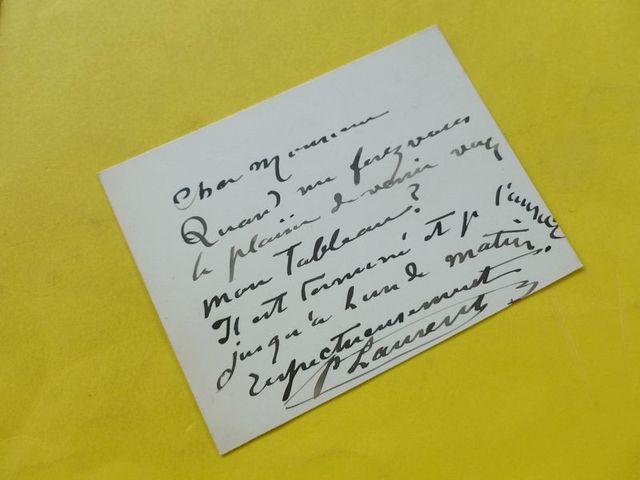 Cher Monsieur
Quand me ferez vous
le plaisir de venir voir
mon Tableau?
Il est terminé et je
jusqu'à lundi matin.
respectueusement
P Laurent